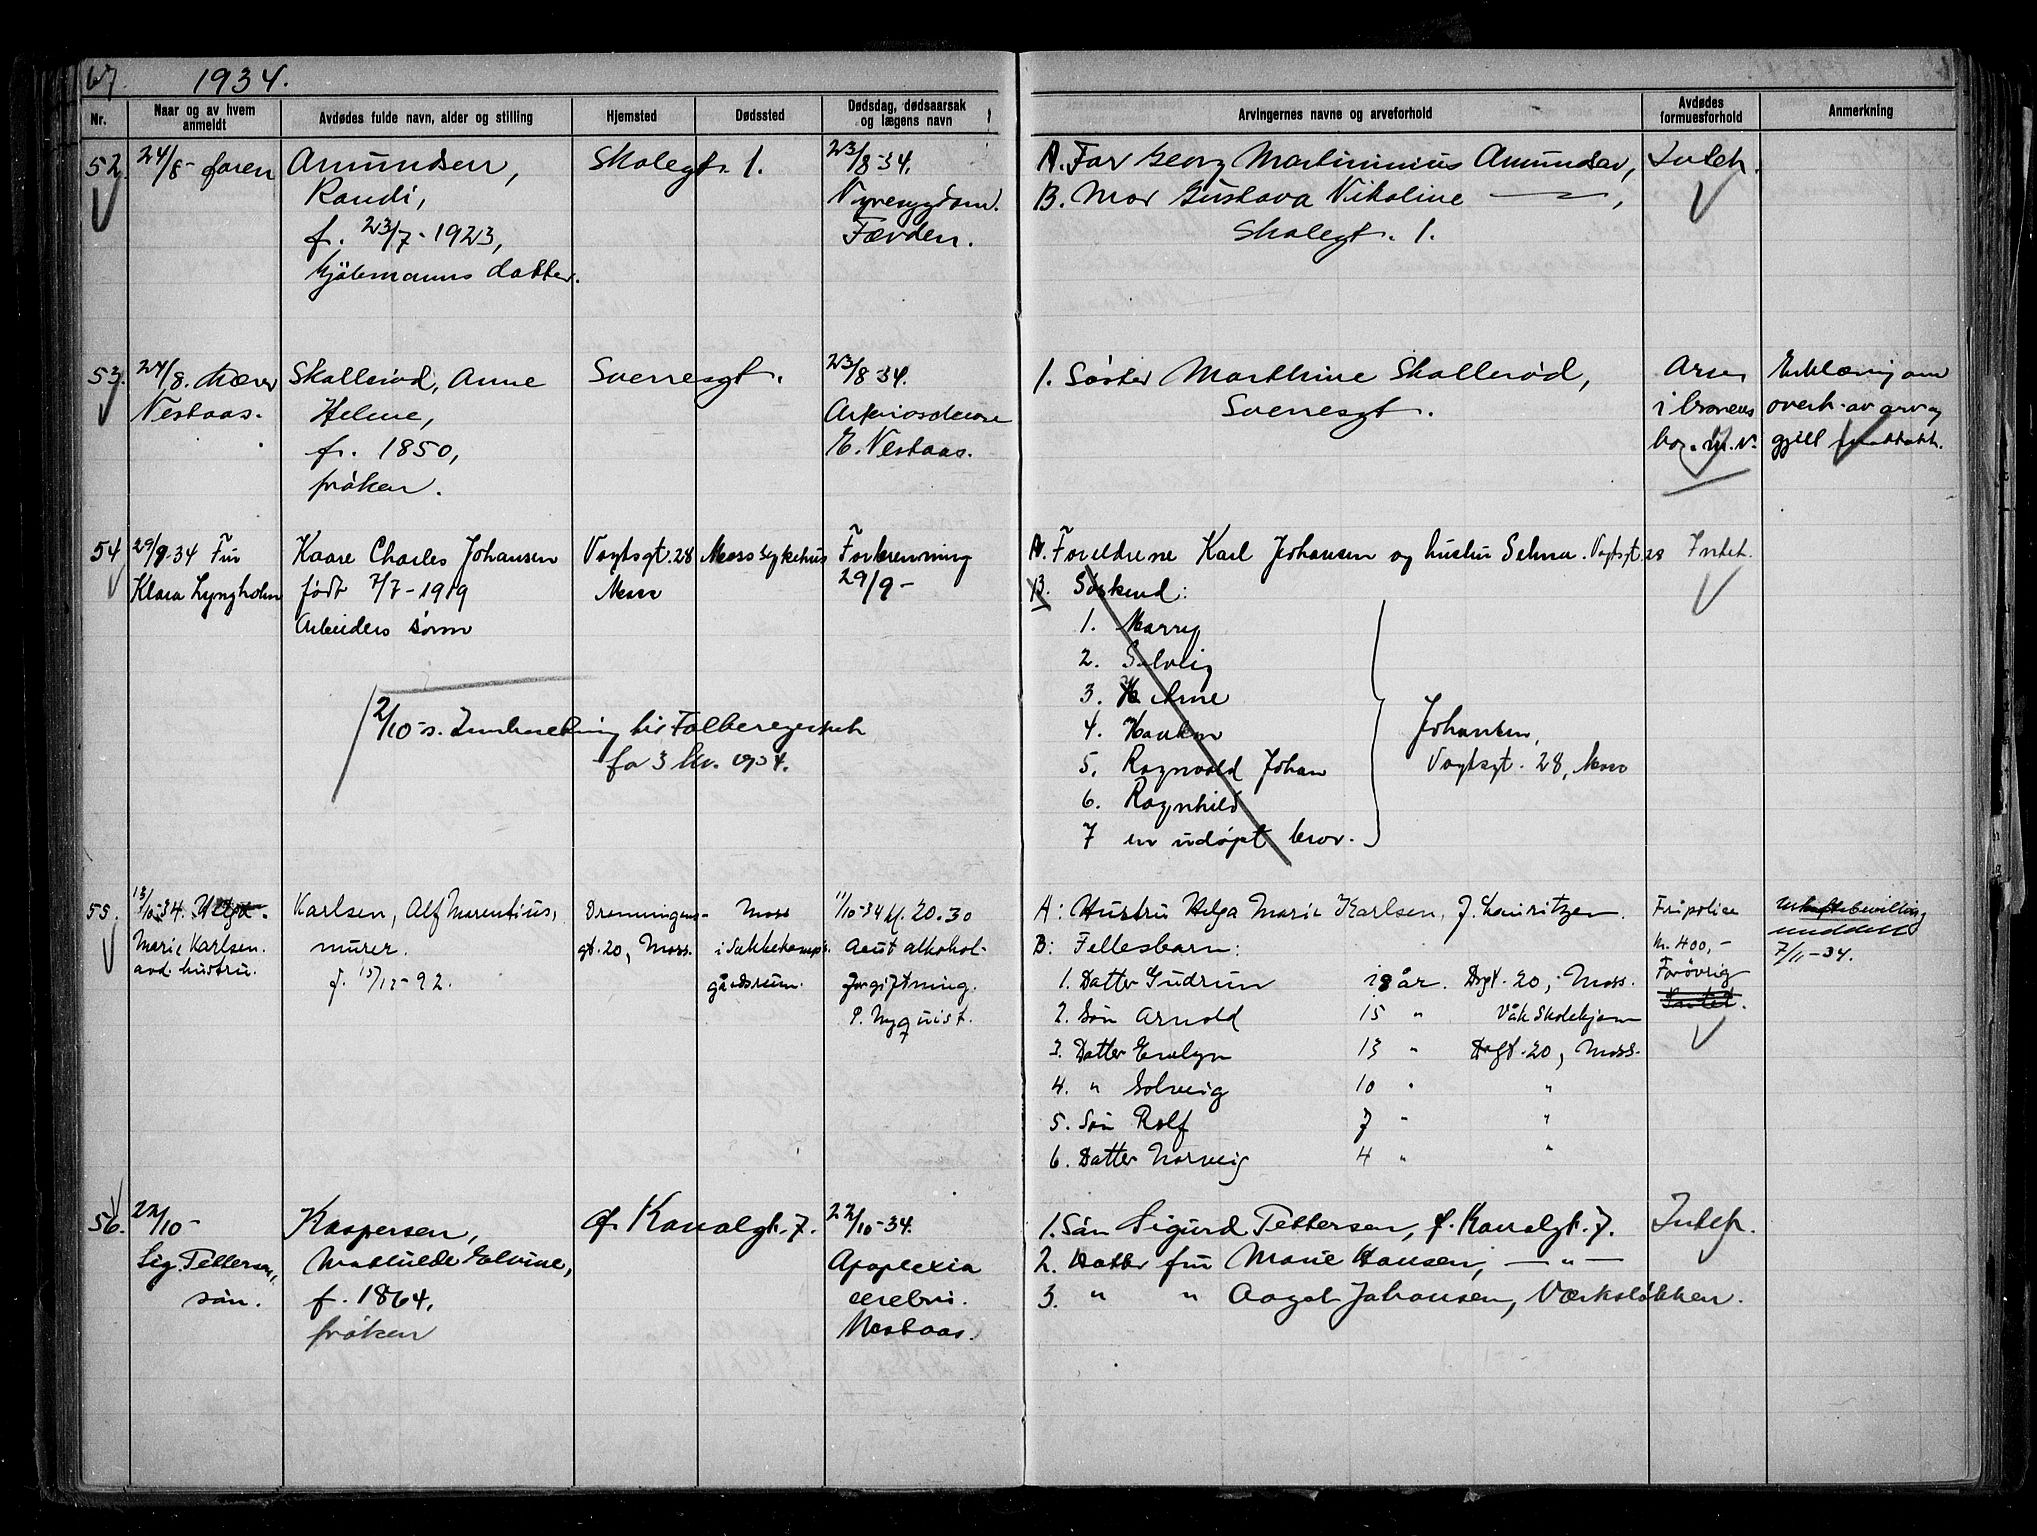 67. 1934.
Nr.
Naar og av hvem anmeldt
Avdødes fulde navn, alder og stilling
Hjemsted
Dødssted
Dødsdag, dødsaarsak og lægens navn
Arvingernes navne og arveforhold
Avdødes formuesforhold
Anmerkning
52. 24/8- faren
Amundsen,
Randi,
f. 23/7-1923,
Gjötemanns datter.
Skolegt. 1.
23/8-34.
Nyresygdom.
Færden.
A. Far Georg Martininius Amundsen,
B. Mor Gustava Nikoline — ,
Skolegt. 1.
Intet.
53. 24/8.
Nestaas.
Skallerød, Anne
Helene,
f. 1850,
frøken.
Sverresgt.
23/8 34.
E. Nestaas.
1. Søster Marthine Skallerød,
Sverresgt.
Arven
bo. m.v.
Erklæring om
overt. av arv og
gjeld mottatt.
54 29/9-34 Fru
Klara Lyngholm
Kaare Charles Johansen
født 7/7-1919
Arbeiders sønn
Vogtsgt. 28
Moss
Moss sykehus
Forbrenning
29/9-
A. Foreldrene Karl Johansen og hustru Selma. Vogtsgt. 28
Intet.
B. Søskend:
1. Harry
2. Solveig
3. Arne
4. Haakon
5. Ragnvald Johan
6. Ragnhild
7 en udøpt bror.
Johansen,
Vogtsgt. 28, Moss
2/10 s. Innberetning til Folkeregistret
for 3 kv. 1934.
55. 13/10-34. Helga
Marie Karlsen.
avd. hustru.
Karlsen, Alf Marentius,
murer.
f. 15/12-92.
Dronningens-
gt. 20, Moss.
Moss
gårdsrum.
11/10-34 kl. 20.30
Acut alkohol-
forgiftning.
P. Nyquist.
A: Hustru Helga Marie Karlsen, f. Lauritzen.
B: Fellesbarn:
1. Datter Gudrun 18 år. Drgt. 20, Moss.
2. Søn Arnold 15 " Våk Skolehjem
3. Datter Evelyn 13 " Drgt. 20, Moss.
4. " Solveig 10 " "
5. Søn Rolf 7 " "
6. Datter Norveig 4 " "
Fripolice
kr. 400,-
Forøvrig
Intet.
Uskiftebevilling
meddelt
7/11-34.
56. 22/10-
Sig. Pettersen,
søn.
Kaspersen,
Mathilde Elvine,
f. 1864,
frøken
Ø. Kanalgt. 7.
22/10-34.
Apoplexia
cerebri.
Nestaas.
1. Søn Sigurd Pettersen, Ø. Kanalgt. 7.
2. Datter fru Marie Hansen, — " —
3. " " Aagot Johansen, Værksløkken.
Intet.